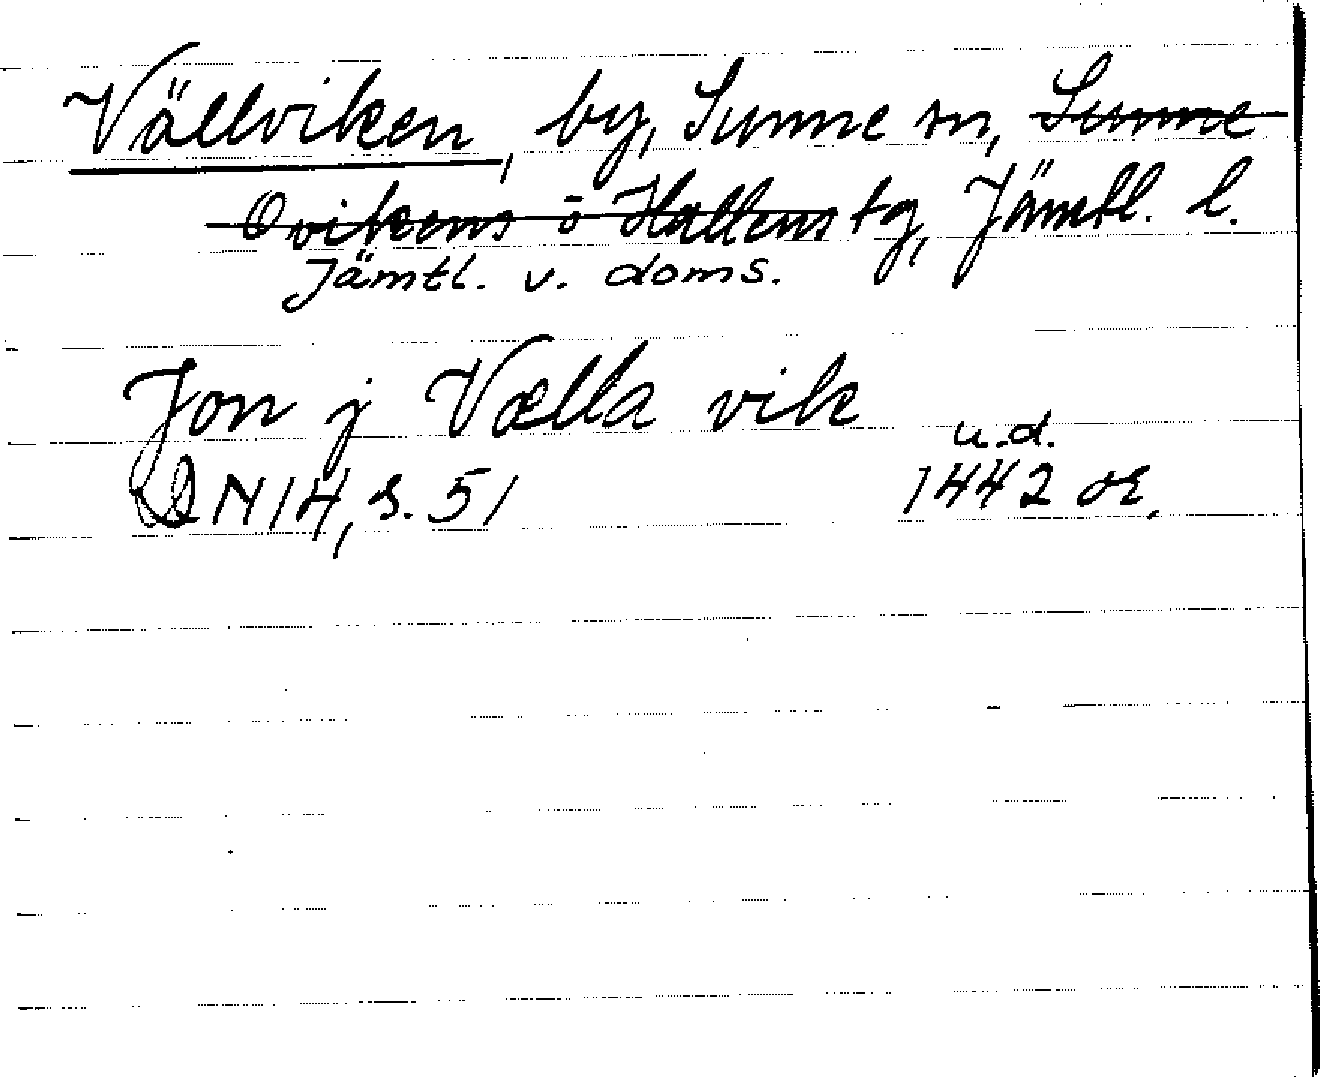 Vällviken, by, Sunne sn, Sunne
Ovikens o Hallens tg, Jämtl. l.
Jämtl. v. doms.
Jon j Vælla vik
u.d.
DN 14, s. 51 1442 or.